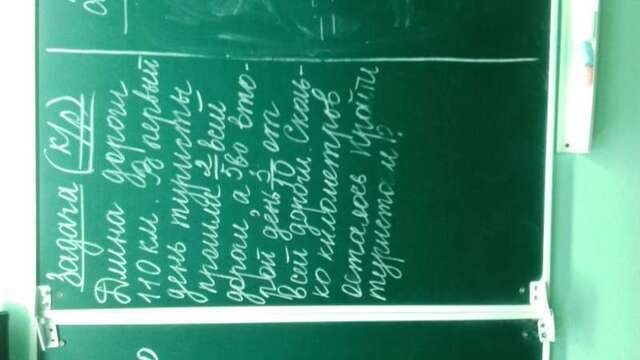 Задача (к/р)
Длина дороги
110 км. В первый
день туристы
прошли 2/5 всей
дороги, а во вто-
рой день 3/10 от
всей дороги. Сколь-
ко километров
осталось пройти
туристам?